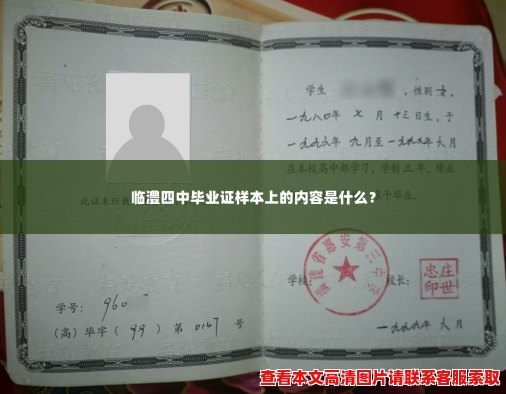 此证未经教
学号：960
（高）毕字（99）第 0147 号
学生 ，性别女，
一九八〇年 七 月 十三日生，于
一九九六年 九月至一九九九年六月
在本校高中部学习，学制三年，修业
予毕业。
临澧四中毕业证样本上的内容是什么？
学校： 校长：
福建省惠安第三中学
庄世忠印
一九九九年 六 月
查看本文高清图片请联系客服索取